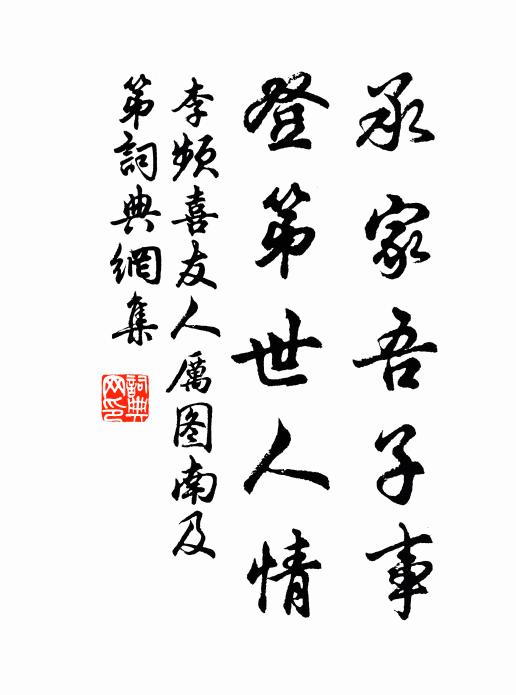 承家吾子事
登第世人情
李频喜友人厲图南及
第詞典網集
詞典网印